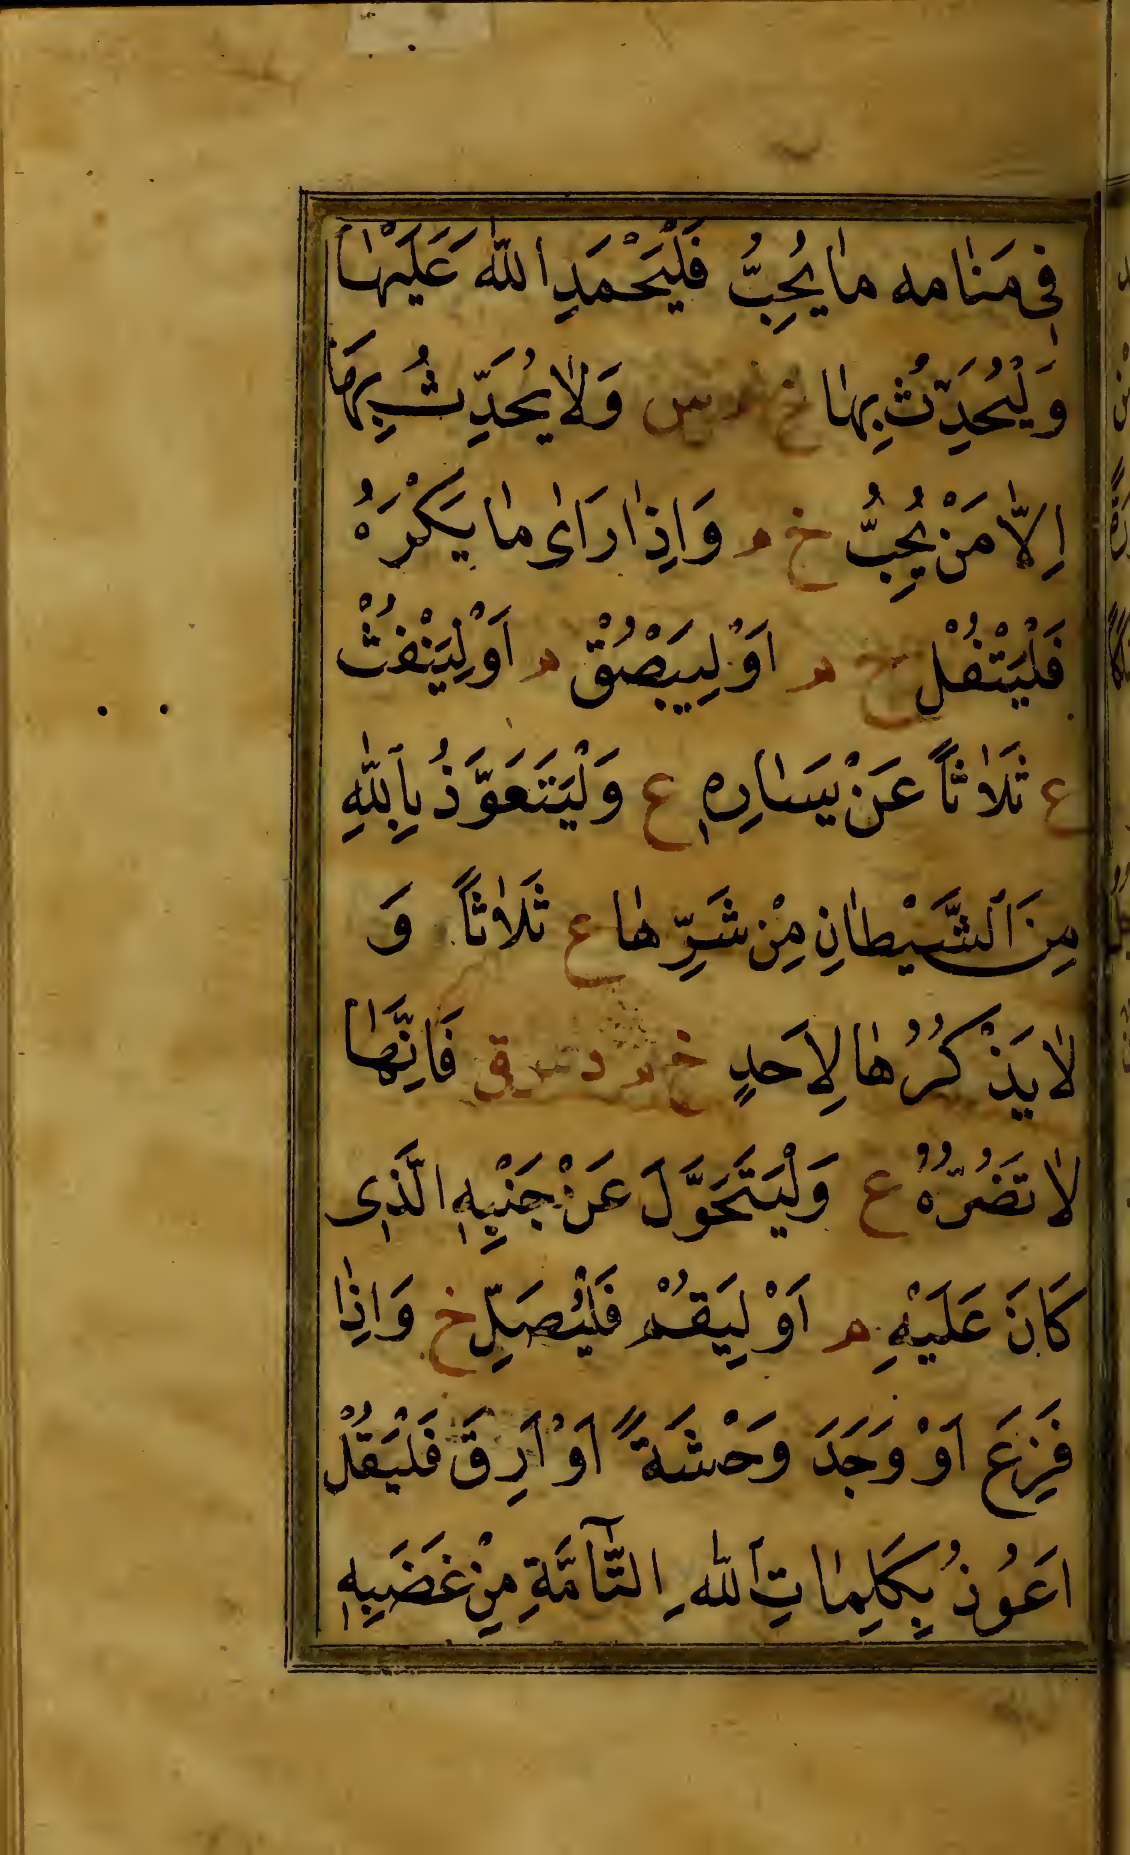 فِي مَنَامه مَا يُحِبُّ فَلْيَحْمَدِ اللّٰهَ عَلَيْهَا
وَلْيُحَدِّثُ بِهَا خ م س وَلَا يُحَدِّثُ بِهَا
اِلَّا مَنْ يُحِبُّ خ م وَاِذَا رَاٰى مَا يَكْرَهُ
فَلْيَتْفُلْ خ م اَوْ لِيَبْصُقْ م اَوْ لِيَنْفُثْ
ع ثَلَاثًا عَنْ يَسَارِهِ ع وَلْيَتَعَوَّذُ بِاللّٰهِ
مِنَ الشَّيْطَانِ مِنْ شَرِّهَا ع ثَلَاثًا وَ
لَا يَذْكُرُهَا لِاَحَدٍ خ م د س ق فَاِنَّهَا
لَا تَضُرُّهُ ع وَلْيَتَحَوَّلَ عَنْ جَنْبِهِ الَّذِى
كَانَ عَلَيْهِ م اَوْ لِيَقُمْ فَلْيُصَلِّ خ وَاِذَا
فَزِعَ اَوْ وَجَدَ وَحْشَةً اَوْ اَرِقَ فَلْيَقُلْ
اَعُوذُ بِكَلِمَاتِ اللّٰهِ التَّآمَّةِ مِنْ غَضَبِهِ